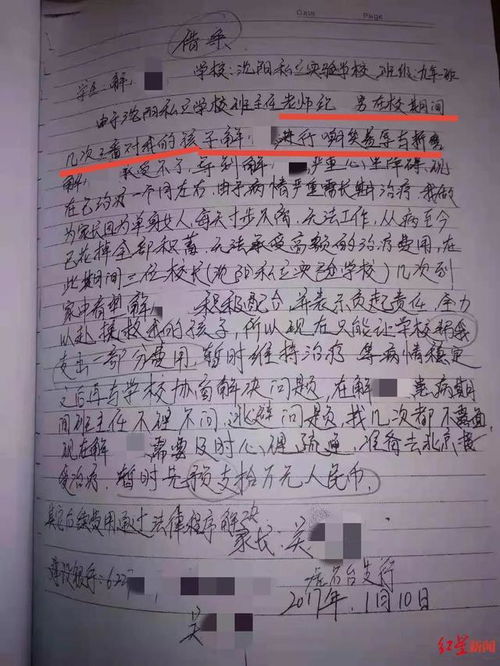 DATE PAGE
借条
学生：解 学校：沈阳私立实验学校 班级：九年 班
由于沈阳私立学校班主任老师纪 男在校期间
几次三番对我的孩子解 进行嘲笑羞辱与折磨
承受不了，导到解 严重心里障碍，现
在已约有一个月左右，由于病情严重需长期治疗，我做
为家长因为单身女人，每天寸步不离，无法工作，从病至今
已花掉全部积蓄，无法承受高额的治疗费用，在
此期间三位校长（沈阳私立实验学校）几次到
家中看望解 积极配合，并表示负起责任，全力
以赴援救我的孩子，所以现在只能让学校
支出一部分费用，暂时维持治疗 等病情稳定
之后再与学校协商解决问题，在解 患病期
间班主任不理不问，逃避问题，找几次都不露面
现在解 需要及时心理疏通，准备去北京接
受治疗，暂时先预支拾万元人民币，
其它后续费用通过法律程序解决
家长：吴
建设银行：622 虎石台支行
吴 2017年1月10日
红星新闻